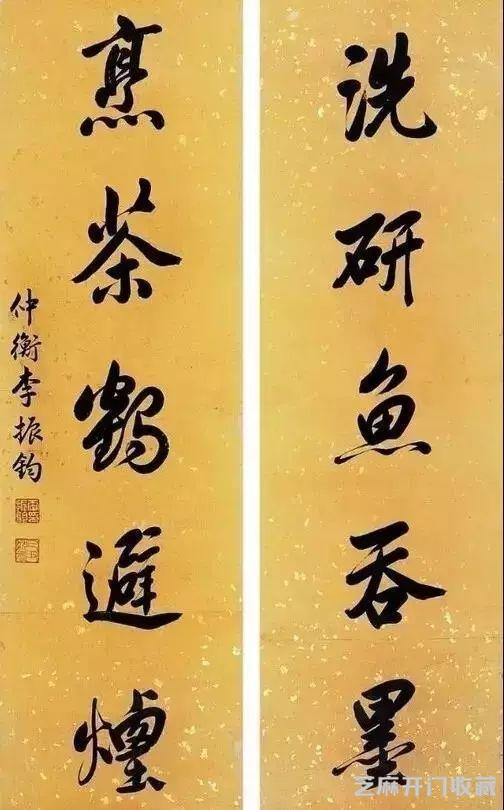 洗研魚吞墨
烹茶鶴避煙
仲衡李振鈞
芝麻开门收藏